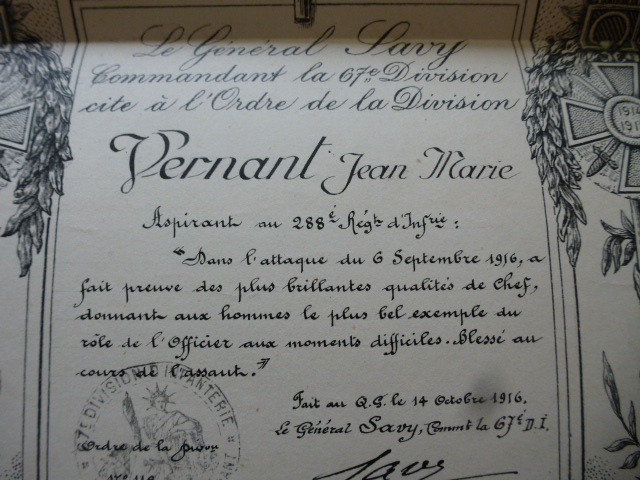 Le Général Savy
Commandant la 67e Division
cite à l'Ordre de la Division
Vernant Jean Marie
Aspirant au 288e Régt d'Infrie :
"Dans l'attaque du 6 Septembre 1916, a
fait preuve des plus brillantes qualités de Chef,
donnant aux hommes le plus bel exemple du
rôle de l'Officier aux moments difficiles. Blessé au
cours de l'assaut."
Fait au Q.G. le 14 Octobre 1916.
Le Général Savy, Commt la 67e D.I.
Savy
7e DIVISION D'INFANTERIE
Ordre de la Divon
1914
191